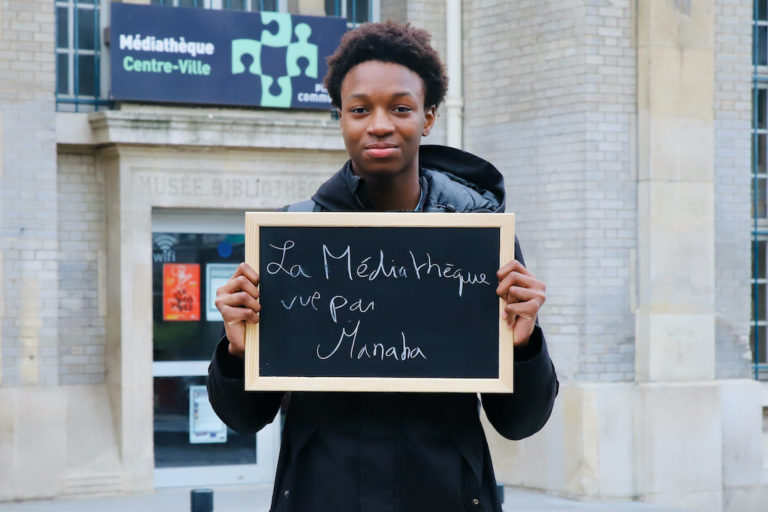 Médiathèque
Centre-Ville
MUSÉE BIBLIOTHÈ
wifi
La Médiathèque
vue par
Manaba